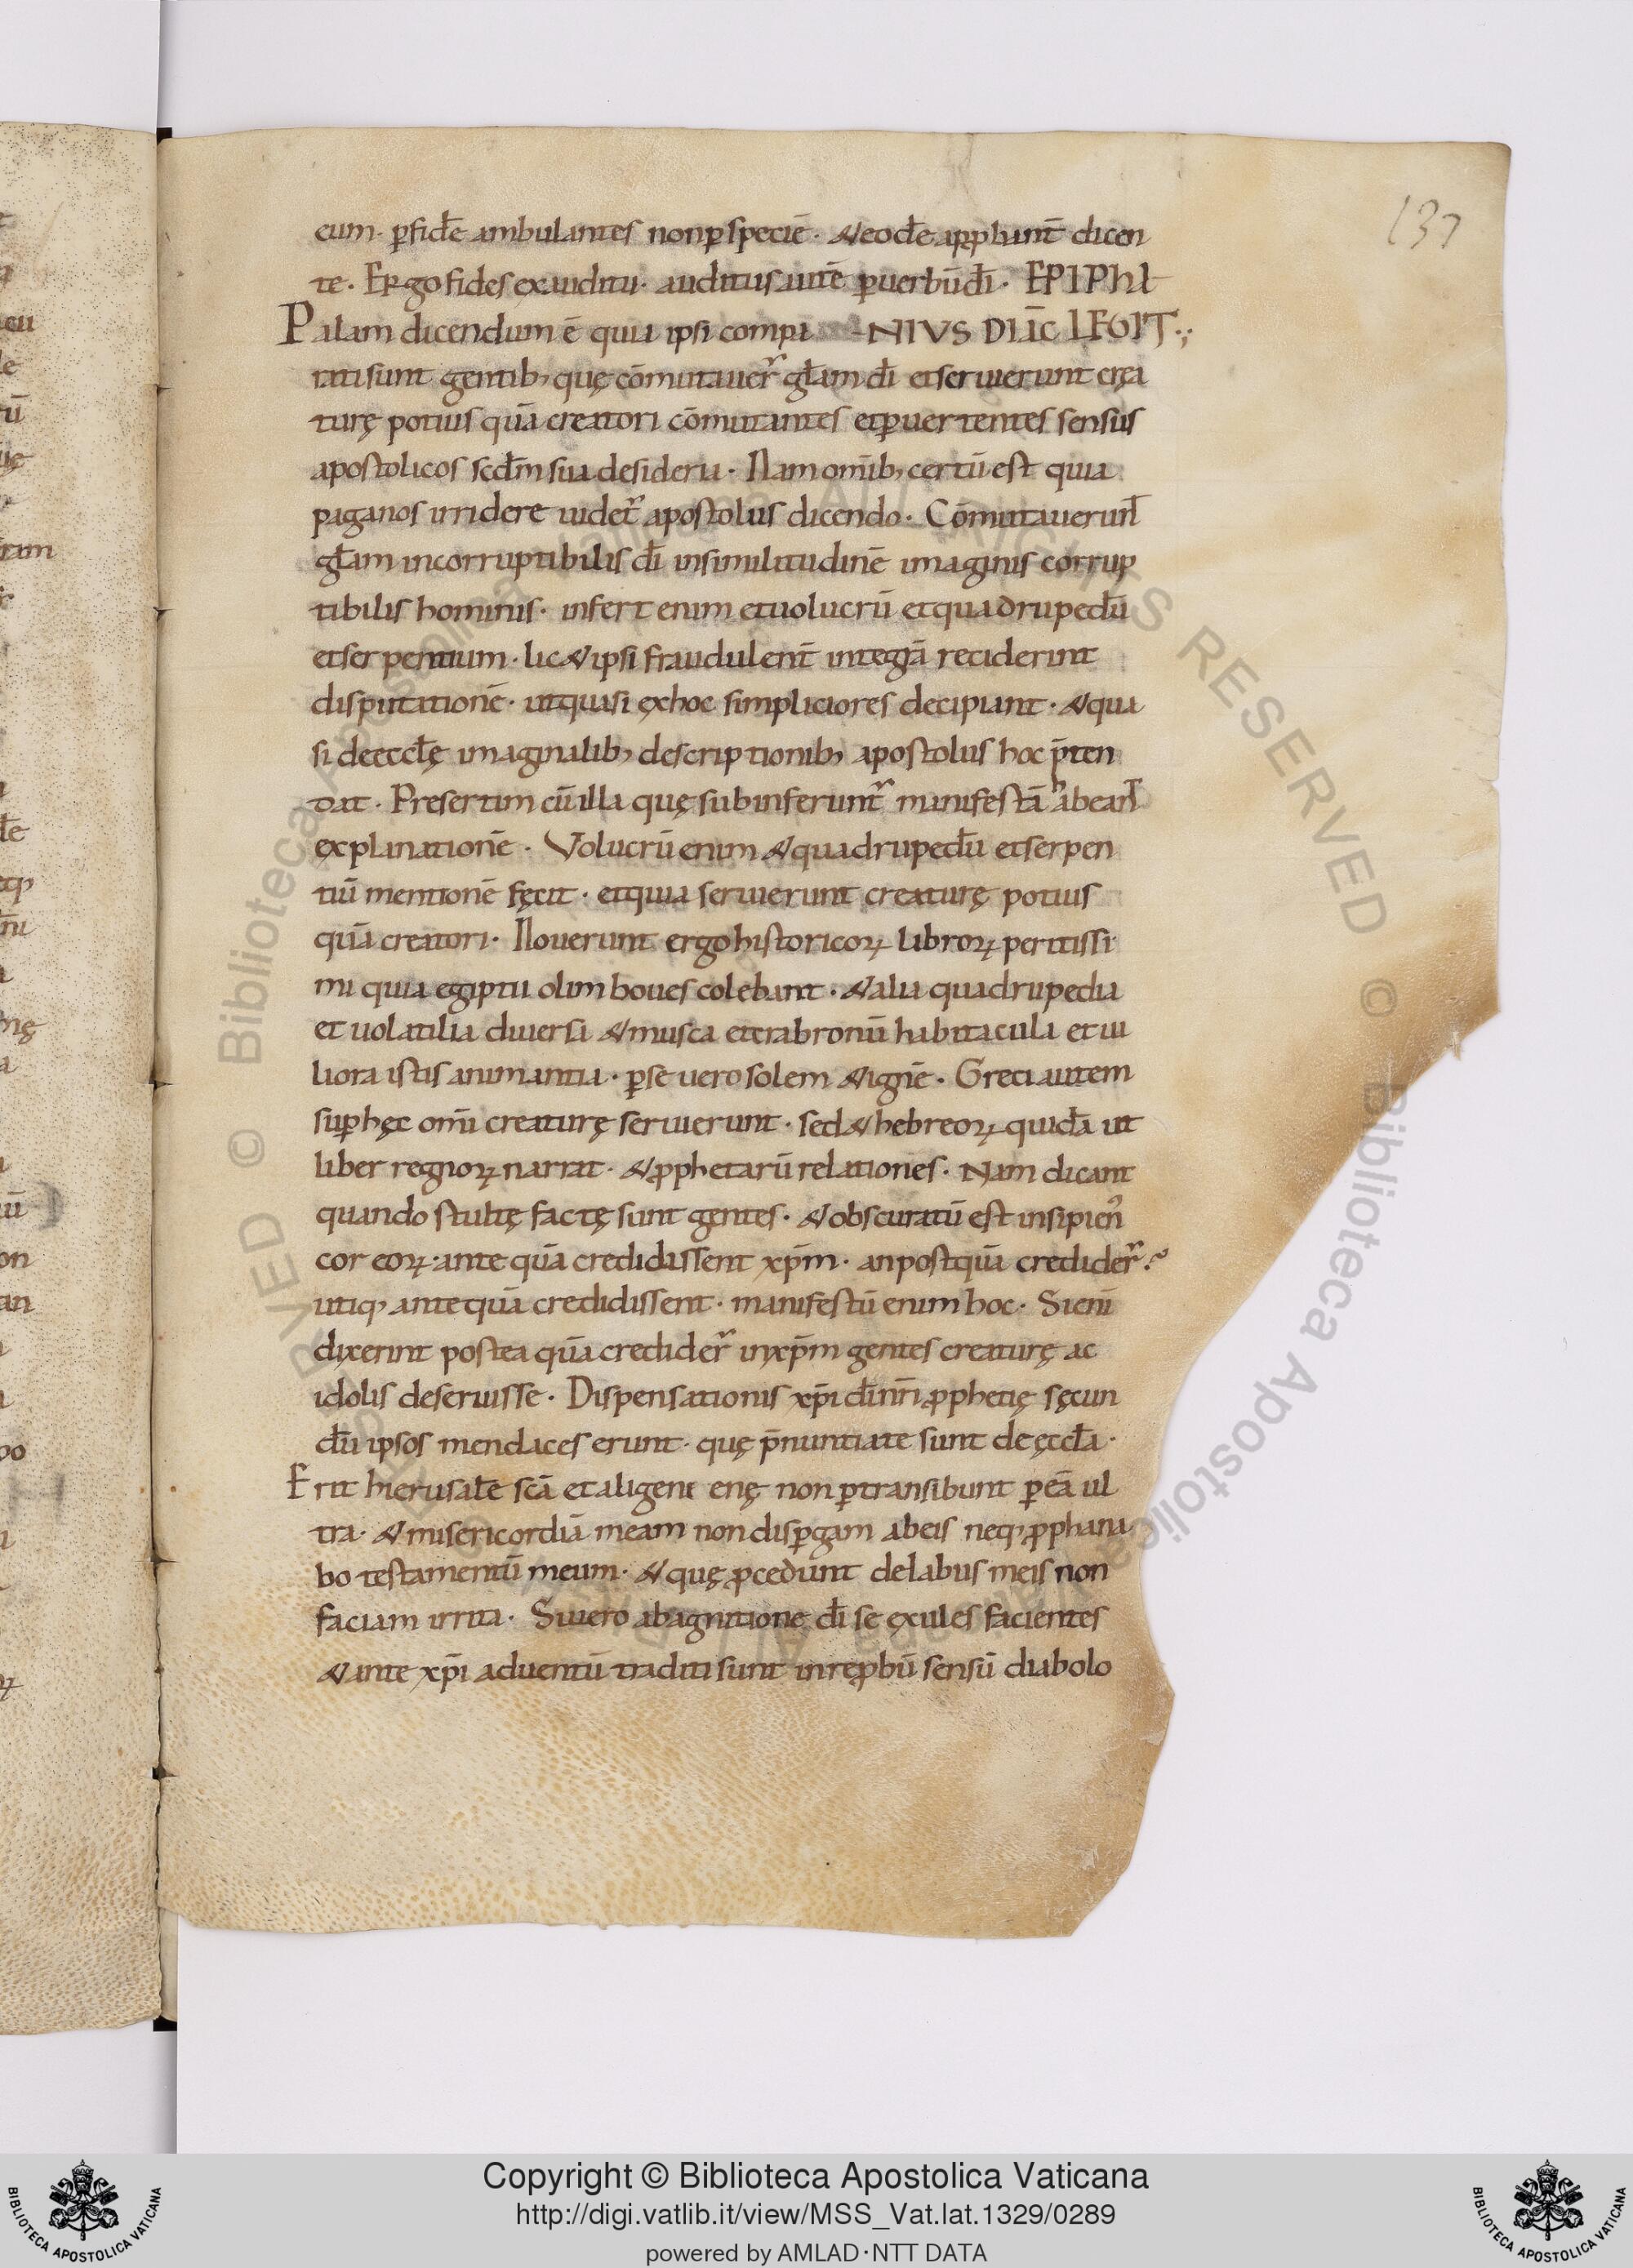 137
cum· ꝑfidē ambulantes nonꝑspeciē· &eodē app̄hunt̄ dicen
te· Ergo fides exauditu· auditus autē ꝑuerbūdī· EPIPHA
Palam dicendum ē quia ipsi compa -NIVS DIAC̄ LEGIT·,·
rati sunt gentib; quę cōmutauer̃ gl̄am dī etseruierunt crea
turę potius quā creatori cōmutantes etꝑuertentes sensus
apostolicos scdm̄ sua desideria· Nam omīb; certū est quia
paganos irridere uidet̃ apostolus dicendo· Cōmutauerunt
gl̄am incorruptibilis dī insimilitudinē imaginis corrup
tibilis hominis· infert enim etuolucrū etquadrupedū
etserpentium· lic& ipsi fraudulent̄ integrā reciderint
disputationē· utquasi exhoc simpliciores decipiant· &qua
si deeccl̄ę imaginalib; descriptionib; apostolus hoc p̄ten
dat· Presertim cūilla quę subinferunt̃ manifestā ʰabeant
explanationē· Volucrū enim &quadrupedū etserpen
tiū mentionē fęcit· etquia seruierunt creaturę potius
quā creatori· Nouerunt ergo historicoꝝ libroꝝ peritissi
mi quia egiptii olim boues colebant· &alia quadrupedia
et uolatilia diuersa &musca etcrabronū habitacula et ui
liora istis animantia· ꝑse uero solem &ignē· Greci autem
suꝑhęc omī creaturę seruierunt· sed&hebreoꝝ quidā ut
liber regnoꝝ narrat· &ꝓphetarū relationes· Nam dicant
quando stultę factę sunt gentes· &obscuratū est insipien᷒
cor eoꝝ· ante quā credidissent xp̄m· anpostquā credider̃?
utiq; ante quā credidissent· manifestū enim hoc· Sienī
dixerint postea quā credider̃ inxp̄m gentes creaturę ac
idolis deseruisse· Dispensationis xp̄i dīnrī ꝓphetię sęcun
dū ipsos mendaces erunt· quę p̄nuntiate sunt de ęccl̄a·
Erit hierusalē scā et aligeni enę non ꝑtransibunt ꝑeā ul
tra· &misericordiā meam non disꝑgam abeis neq; ꝓphana
bo testamentū meum· &quę ꝓcedunt delabiis meis non
faciam irrita· Siuero abagnitione dī se exules facientes
&ante xp̄i aduentū traditi sunt inreꝓbū sensū diabolo
Copyright © Biblioteca Apostolica Vaticana
http://digi.vatlib.it/view/MSS_Vat.lat.1329/0289
powered by AMLAD·NTT DATA